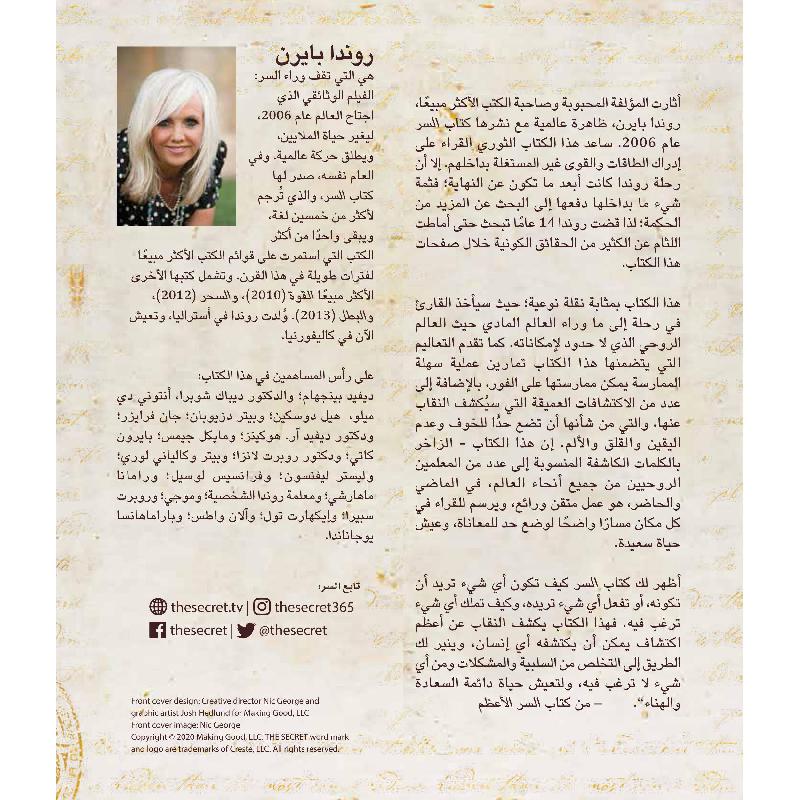 أثارت المؤلفة المحبوبة وصاحبة الكتب الأكثر مبيعًا،
روندا بايرن، ظاهرة عالمية مع نشرها كتاب السر
عام 2006. ساعد هذا الكتاب الثوري القراء على
إدراك الطاقات والقوى غير المستغلة بداخلهم. إلا أن
رحلة روندا كانت أبعد ما تكون عن النهاية؛ فثمة
شيء ما بداخلها دفعها إلى البحث عن المزيد من
الحكمة؛ لذا قضت روندا 14 عامًا تبحث حتى أماطت
اللثام عن الكثير من الحقائق الكونية خلال صفحات
هذا الكتاب.
هذا الكتاب بمثابة نقلة نوعية؛ حيث سيأخذ القارئ
في رحلة إلى ما وراء العالم المادي حيث العالم
الروحي الذي لا حدود لإمكاناته. كما تقدم التعاليم
التي يتضمنها هذا الكتاب تمارين عملية سهلة
الممارسة يمكن ممارستها على الفور، بالإضافة إلى
عدد من الاكتشافات العميقة التي سيُكشف النقاب
عنها، والتي من شأنها أن تضع حدًّا للخوف وعدم
اليقين والقلق والألم. إن هذا الكتاب - الزاخر
بالكلمات الكاشفة المنسوبة إلى عدد من المعلمين
الروحيين من جميع أنحاء العالم، في الماضي
والحاضر، هو عمل متقن ورائع، ويرسم للقراء في
كل مكان مسارًا واضحًا لوضع حد للمعاناة، وعيش
حياة سعيدة.
أظهر لك كتاب السر كيف تكون أي شيء تريد أن
تكونه، أو تفعل أي شيء تريده، وكيف تملك أي شيء
ترغب فيه. فهذا الكتاب يكشف النقاب عن أعظم
اكتشاف يمكن أن يكتشفه أي إنسان، وينير لك
الطريق إلى التخلص من السلبية والمشكلات ومن أي
شيء لا ترغب فيه، ولتعيش حياة دائمة السعادة
والهناء“. – من كتاب السر الأعظم
روندا بايرن
هي التي تقف وراء السر:
الفيلم الوثائقي الذي
اجتاح العالم عام 2006،
ليغير حياة الملايين،
ويطلق حركة عالمية. وفي
العام نفسه، صدر لها
كتاب السر، والذي تُرجم
لأكثر من خمسين لغة،
ويبقى واحدًا من أكثر
الكتب التي استمرت على قوائم الكتب الأكثر مبيعًا
لفترات طويلة في هذا القرن. وتشمل كتبها الأخرى
الأكثر مبيعًا القوة (2010)، والسحر (2012)،
والبطل (2013). وُلدت روندا في أستراليا، وتعيش
الآن في كاليفورنيا.
على رأس المساهمين في هذا الكتاب:
ديفيد بينجهام؛ والدكتور ديباك شوبرا، أنتوني دي
ميلو، هيل دوسكين؛ وبيتر دزيوبان؛ جان فرايزر؛
ودكتور ديفيد آر. هوكينز؛ ومايكل جيمس؛ بايرون
كاتي؛ ودكتور روبرت لانزا؛ وبيتر وكالياني لوري؛
وليستر ليفنسون؛ وفرانسيس لوسيل؛ ورامانا
ماهارشي؛ ومعلمة روندا الشخصية؛ وموجي؛ وروبرت
سبيرا؛ وإيكهارت تول؛ وآلان واطس؛ وباراماهانسا
يوجاناندا.
تابع السر:
thesecret.tv | thesecret365
thesecret | @thesecret
Front cover design: Creative director Nic George and
graphic artist Josh Hedlund for Making Good, LLC
Front cover image: Nic George
Copyright © 2020 Making Good, LLC. THE SECRET word mark
and logo are trademarks of Creste, LLC. All rights reserved.